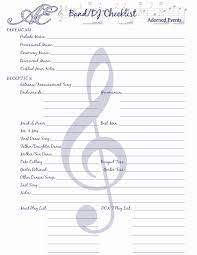 Band/DJ Checklist
Adorned Events
CEREMONY
Prelude Music
Processional Music
Ceremony Music
Recessional Music
RECEPTION
Entrance/Announcement Song
Maid of Honor Best Man
First Dance
Father/Daughter Dance
Mother/Son Dance
Cake Cutting Bouquet Toss
Garter Removal Garter Toss
Other Dances/Songs
Last Song
Must Play List DON'T Play List